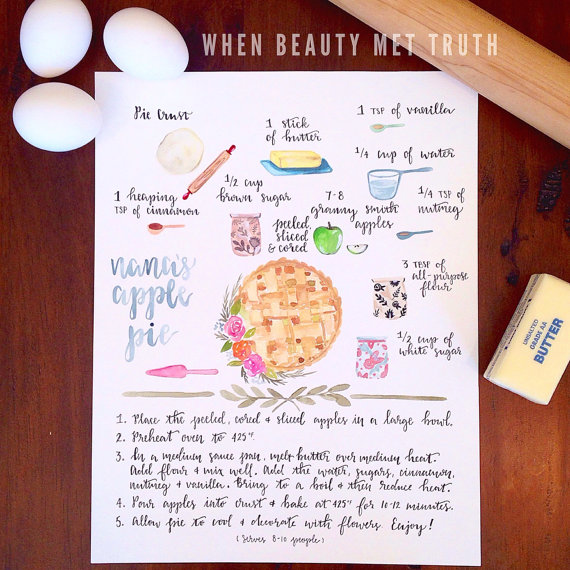 WHEN BEAUTY MET TRUTH
Pie Crust
1 stick
of butter
1 TSP of vanilla
1/4 cup of water
1 heaping
TSP of cinnamon
1/2 cup
brown sugar
7-8
granny smith
apples
peeled,
sliced
& cored
1/4 TSP of
nutmeg
nana's
apple
pie
3 TBSP of
all-purpose
flour
1/2 cup of
white sugar
UNSALTED
GRADE AA
BUTTER
1. Place the peeled, cored & sliced apples in a large bowl.
2. Preheat oven to 425°F.
3. In a medium sauce pan, melt butter over medium heat.
Add flour & mix well. Add the water, sugars, cinnamon,
nutmeg & vanilla. Bring to a boil & then reduce heat.
4. Pour apples into crust & bake at 425°F for 10-12 minutes.
5. Allow pie to cool & decorate with flowers. Enjoy!
(Serves 8-10 people)